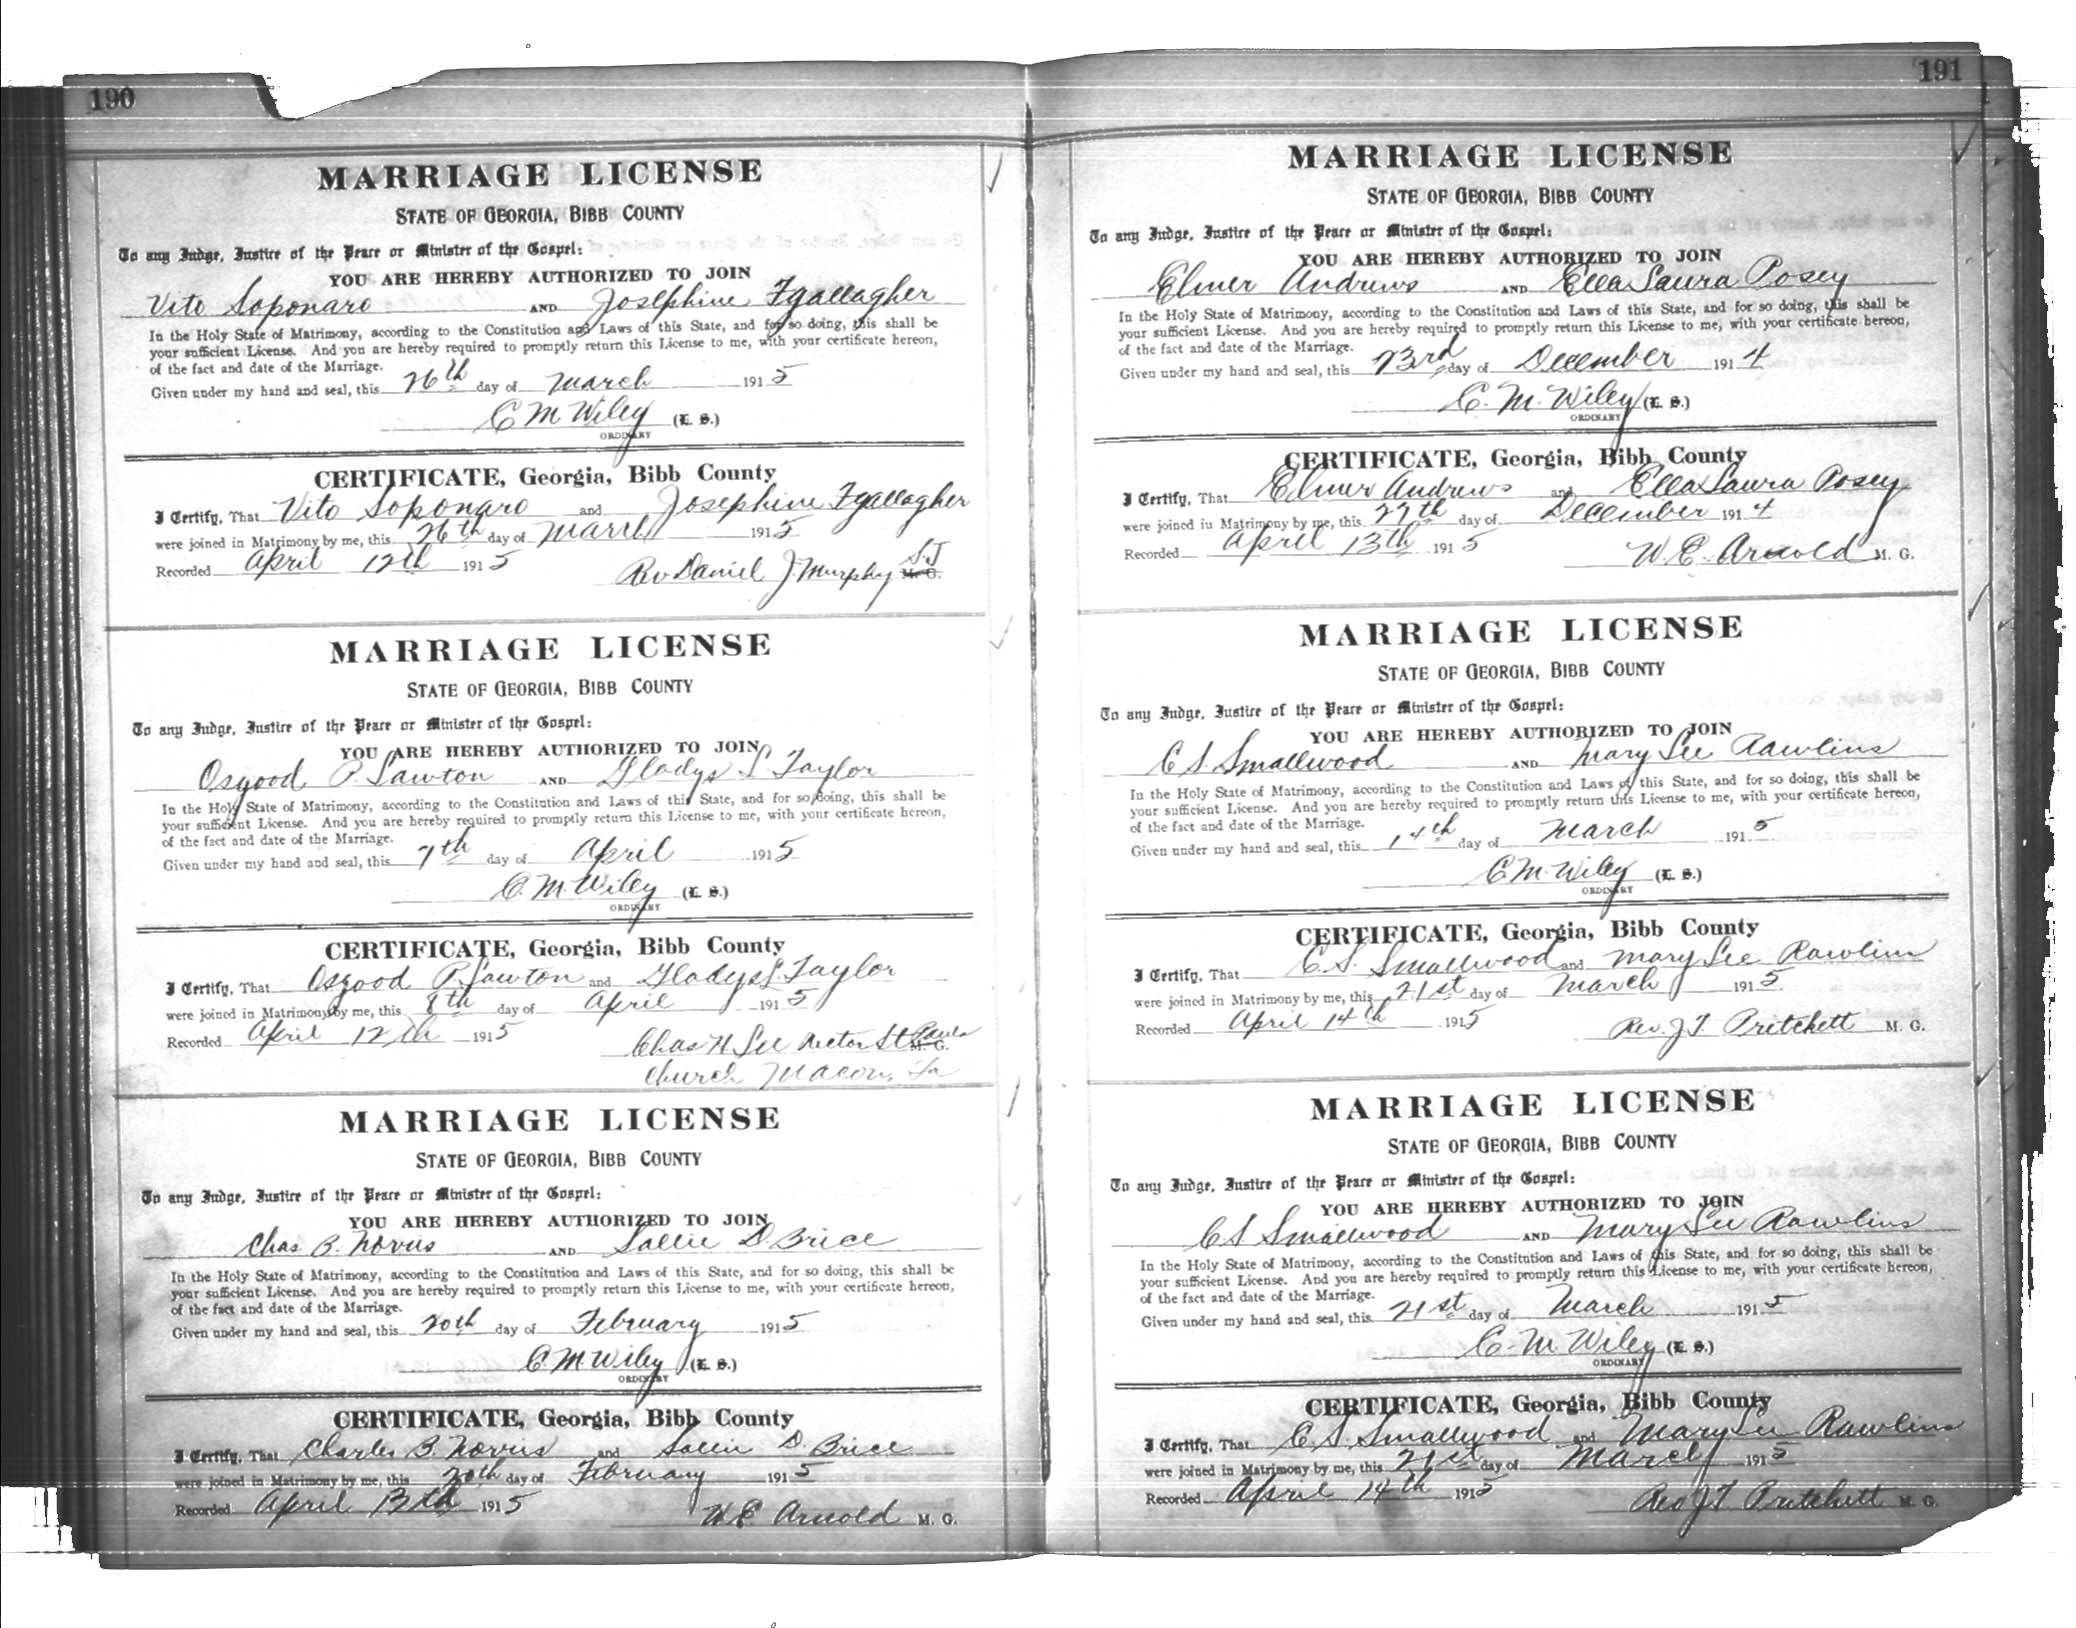 190
MARRIAGE LICENSE
STATE OF GEORGIA, BIBB COUNTY
To any Judge, Justice of the Peace or Minister of the Gospel:
YOU ARE HEREBY AUTHORIZED TO JOIN
Vito Soponaro AND Josephine Fgallagher
In the Holy State of Matrimony, according to the Constitution and Laws of this State, and for so doing, this shall be
your sufficient License. And you are hereby required to promptly return this License to me, with your certificate hereon,
of the fact and date of the Marriage.
Given under my hand and seal, this 26th day of March 1915
C M Wiley (L. S.)
ORDINARY
CERTIFICATE, Georgia, Bibb County
I Certify, That Vito Soponaro and Josephine Fgallagher
were joined in Matrimony by me, this 26th day of March 1915
Recorded April 12th 1915 Rev Daniel J. Murphy S.J M. G.
MARRIAGE LICENSE
STATE OF GEORGIA, BIBB COUNTY
To any Judge, Justice of the Peace or Minister of the Gospel:
YOU ARE HEREBY AUTHORIZED TO JOIN
Osgood P. Lawton AND Gladys L. Taylor
In the Holy State of Matrimony, according to the Constitution and Laws of this State, and for so doing, this shall be
your sufficient License. And you are hereby required to promptly return this License to me, with your certificate hereon,
of the fact and date of the Marriage.
Given under my hand and seal, this 7th day of April 1915
C. M Wiley (L. S.)
ORDINARY
CERTIFICATE, Georgia, Bibb County
I Certify, That Osgood P. Lawton and Gladys L. Taylor
were joined in Matrimony by me, this 8th day of April 1915
Recorded April 12th 1915 Chas H Lee Rector St Pauls M. G.
Church Macon, Ga
MARRIAGE LICENSE
STATE OF GEORGIA, BIBB COUNTY
To any Judge, Justice of the Peace or Minister of the Gospel:
YOU ARE HEREBY AUTHORIZED TO JOIN
Chas B. Norris AND Sallie D. Brice
In the Holy State of Matrimony, according to the Constitution and Laws of this State, and for so doing, this shall be
your sufficient License. And you are hereby required to promptly return this License to me, with your certificate hereon,
of the fact and date of the Marriage.
Given under my hand and seal, this 20th day of February 1915
C M Wiley (L. S.)
ORDINARY
CERTIFICATE, Georgia, Bibb County
I Certify, That Charles B. Norris and Sallie D. Brice
were joined in Matrimony by me, this 20th day of February 1915
Recorded April 13th 1915 W. E. Arnold M. G.
191
MARRIAGE LICENSE
STATE OF GEORGIA, BIBB COUNTY
To any Judge, Justice of the Peace or Minister of the Gospel:
YOU ARE HEREBY AUTHORIZED TO JOIN
Elmer Andrews AND Ella Laura Posey
In the Holy State of Matrimony, according to the Constitution and Laws of this State, and for so doing, this shall be
your sufficient License. And you are hereby required to promptly return this License to me, with your certificate hereon,
of the fact and date of the Marriage.
Given under my hand and seal, this 23rd day of December 1914
C. M. Wiley (L. S.)
ORDINARY
CERTIFICATE, Georgia, Bibb County
I Certify, That Elmer Andrews and Ella Laura Posey
were joined in Matrimony by me, this 27th day of December 1914
Recorded April 13th 1915 W. E. Arnold M. G.
MARRIAGE LICENSE
STATE OF GEORGIA, BIBB COUNTY
To any Judge, Justice of the Peace or Minister of the Gospel:
YOU ARE HEREBY AUTHORIZED TO JOIN
C S. Smallwood AND Mary Lee Rawlins
In the Holy State of Matrimony, according to the Constitution and Laws of this State, and for so doing, this shall be
your sufficient License. And you are hereby required to promptly return this License to me, with your certificate hereon,
of the fact and date of the Marriage.
Given under my hand and seal, this 14th day of March 1915
C M. Wiley (L. S.)
ORDINARY
CERTIFICATE, Georgia, Bibb County
I Certify, That C. S. Smallwood and Mary Lee Rawlins
were joined in Matrimony by me, this 21st day of March 1915
Recorded April 14th 1915 Rev. J T Pritchett M. G.
MARRIAGE LICENSE
STATE OF GEORGIA, BIBB COUNTY
To any Judge, Justice of the Peace or Minister of the Gospel:
YOU ARE HEREBY AUTHORIZED TO JOIN
C S Smallwood AND Mary Lee Rawlins
In the Holy State of Matrimony, according to the Constitution and Laws of this State, and for so doing, this shall be
your sufficient License. And you are hereby required to promptly return this License to me, with your certificate hereon,
of the fact and date of the Marriage.
Given under my hand and seal, this 21st day of March 1915
C. M. Wiley (L. S.)
ORDINARY
CERTIFICATE, Georgia, Bibb County
I Certify, That C. S. Smallwood and Mary Lee Rawlins
were joined in Matrimony by me, this 21st day of March 1915
Recorded April 14th 1915 Rev J T Pritchett M. G.